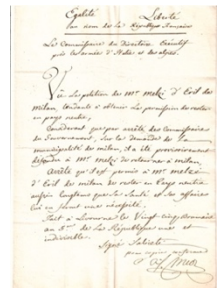 Egalité Liberté
au nom de la République française
Le Commissaire du Directoire Exécutif
près les armées d'Italie et des alpes.
Vu La petition de Mr melzi d'Eril de
milan, tendante à obtenir la permission de rester
en pays neutre,
Considérant que par arrêté des Commissaires
du Gouvernement, sur la demande de la
municipalité de milan, il a été provisoirement
défendu à Mr melzi de retourner à milan,
arrête qu'il est permis à Mr melzi
d'Eril de milan de rester en Pays neutre
aussi longtems que sa Santé et ses affaires
lui en feront une nécessité.
Fait à Livourne le Vingt cinq
an 4me de la République une et
indivisible.
Signé Saliceti
pour copie conforme